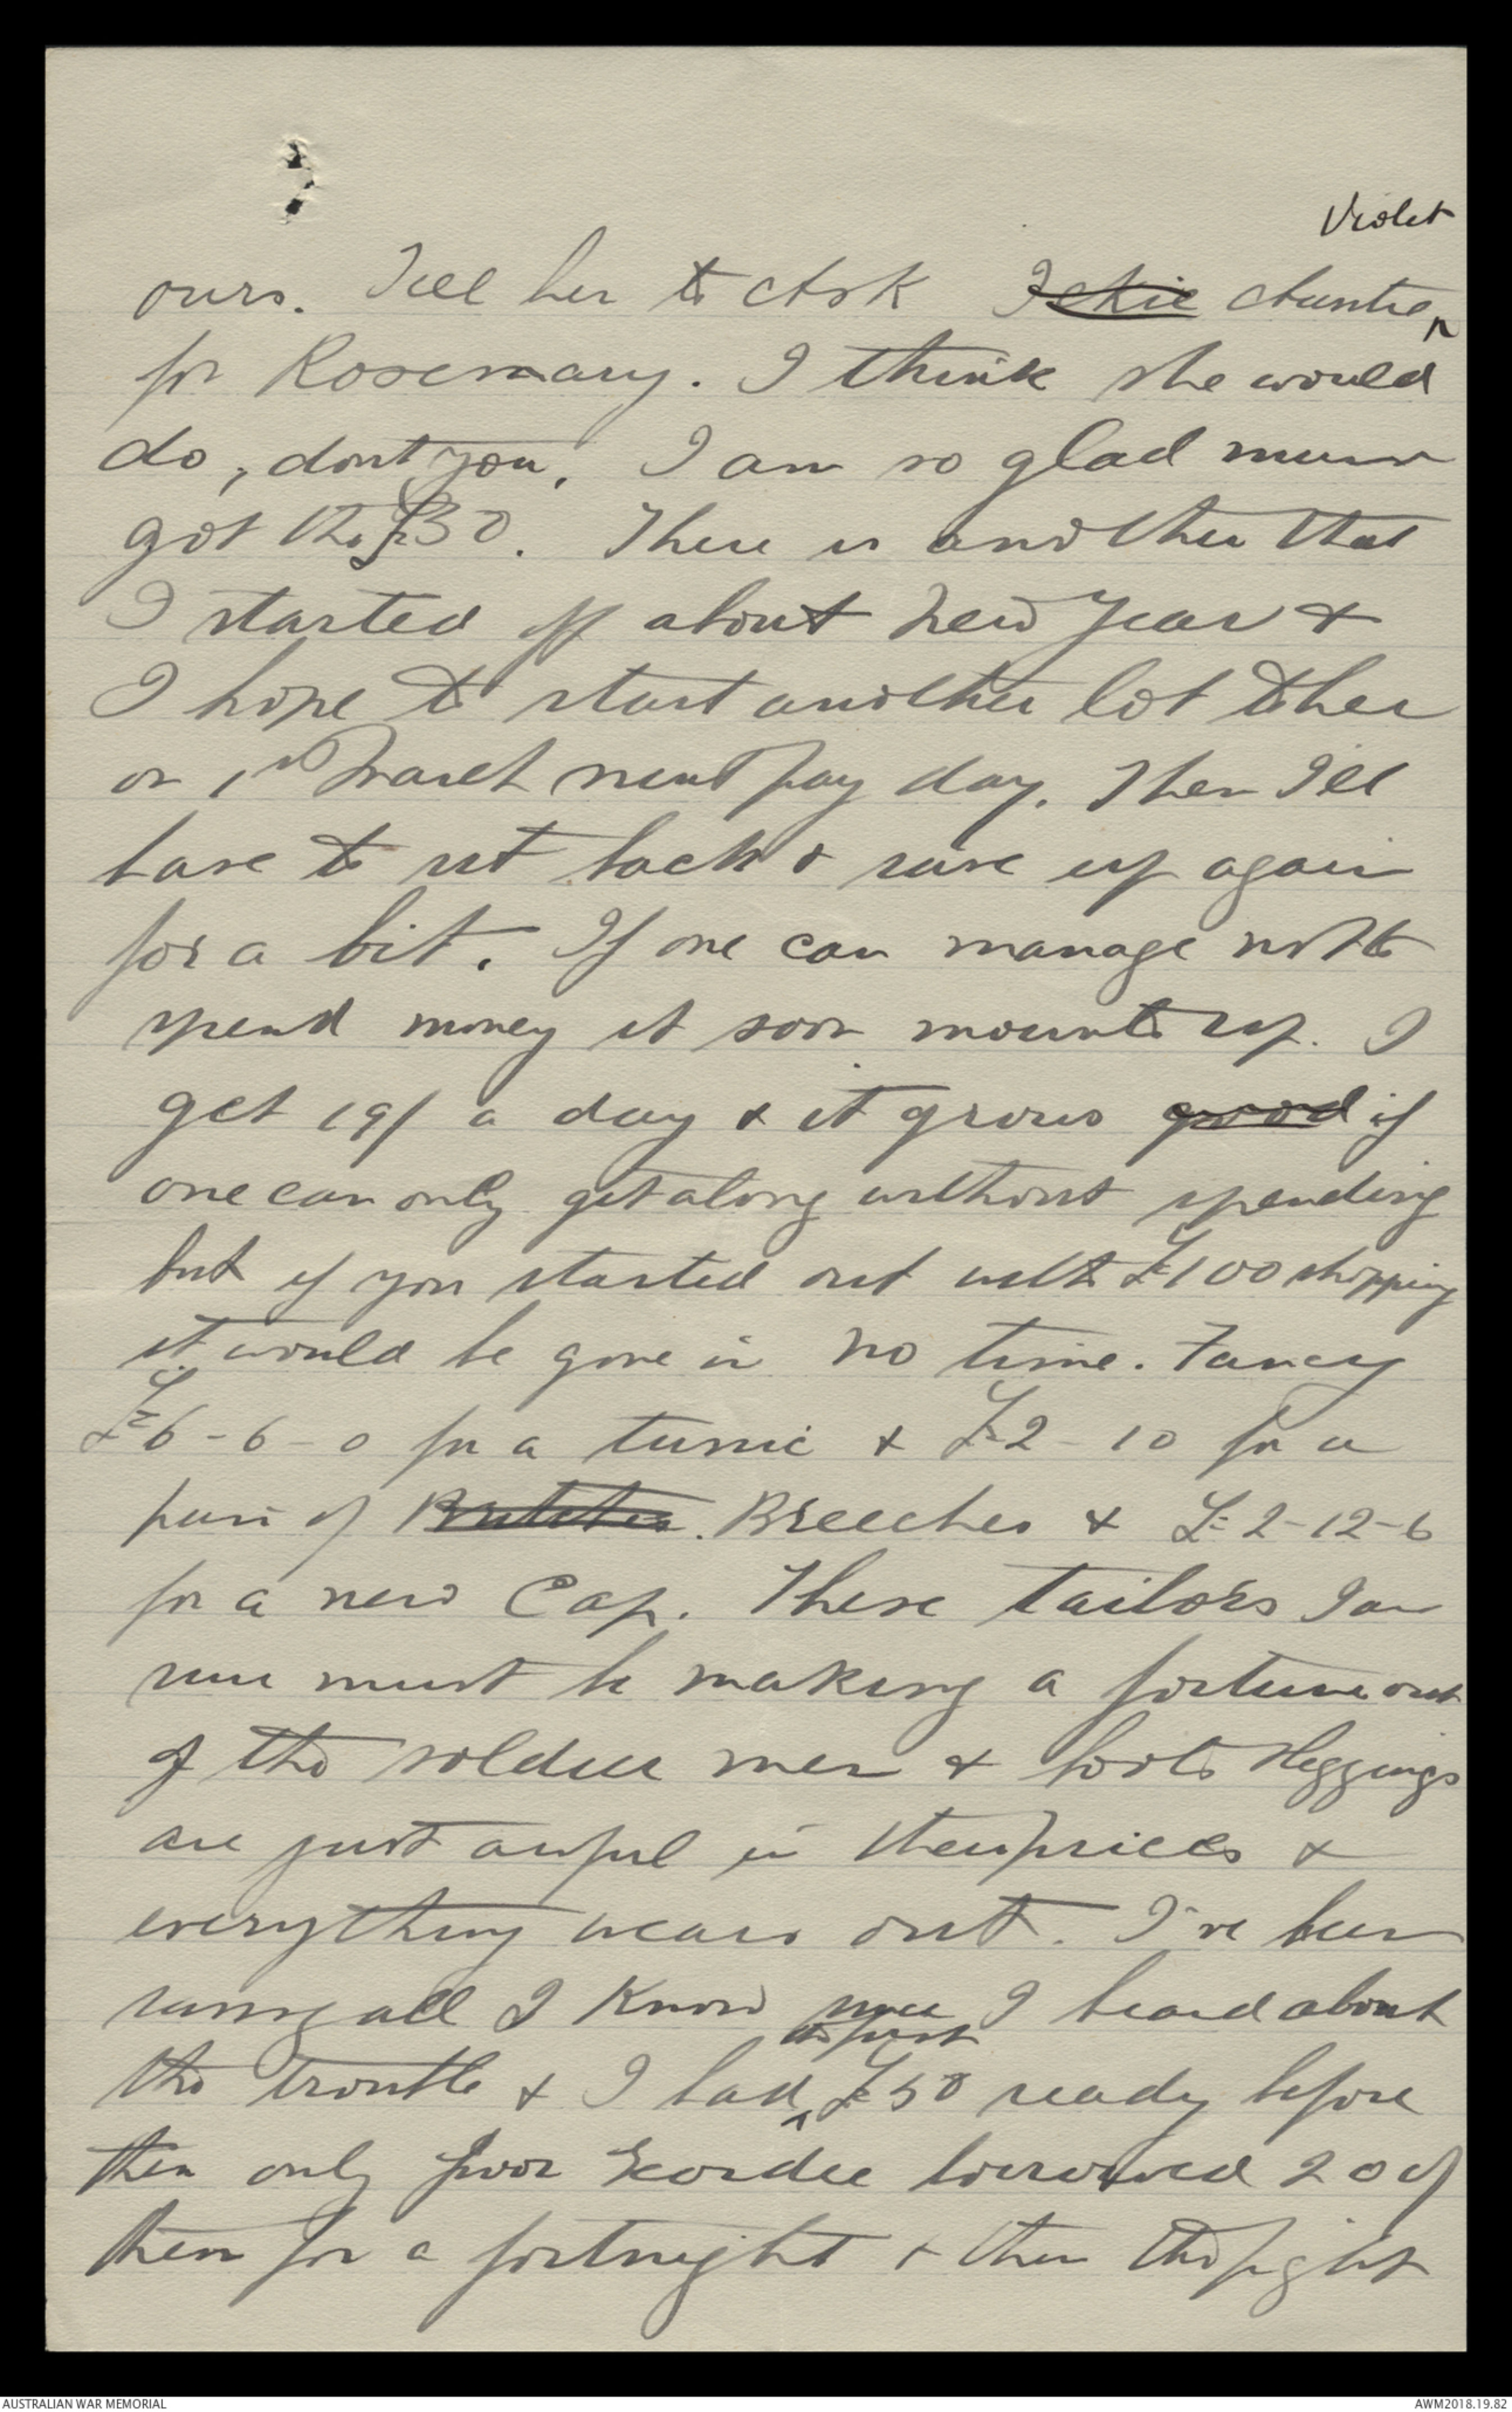 Violet
ours. Tell her to Ask Ickie Auntie ^
for Rosemary. I think she would
do, dont you. I am so glad mum
got the £30. There is another that
I started off about New Year &
I hope to start another lot to her
on 1st March next pay day. Then I'll
have to sit back & save up again
for a bit. If one can manage not to
spend money it soon mounts up. I
get 19/ a day & it grows good if
one can only get along without spending
but if you started out with £100 shopping
it would be gone in no time. Fancy
£6-6-0 for a tunic & £2-10 for a
pair of Breeches & £2-12-6
for a new Cap. These tailors I am
sure must be making a fortune out
of the soldier men & boots & leggings
are just awful in their prices &
everything wears out. I've been
saving all I know since I heard about
at first
the trouble & I had ^ £50 ready before
then only poor Geordie borrowed 20 of
them for a fortnight & then the fight
AUSTRALIAN WAR MEMORIAL
AWM2018.19.82